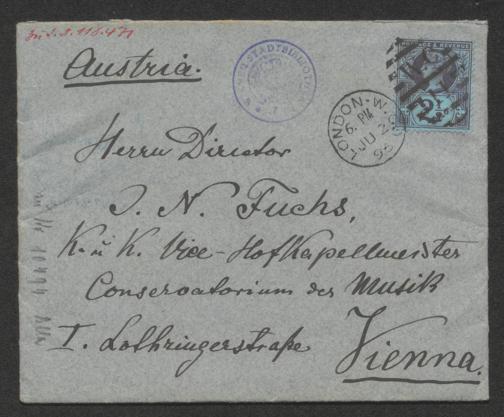 Austria.
WIENER STADTBIBLIOTHEK
POSTAGE & REVENUE
LONDON. W.
6. PM
JU 2
93
Herrn Director
J. N. Fuchs,
K. u K. Vice-Hofkapellmeister
Conservatorium der Musik
I. Lothringerstraße
Vienna.